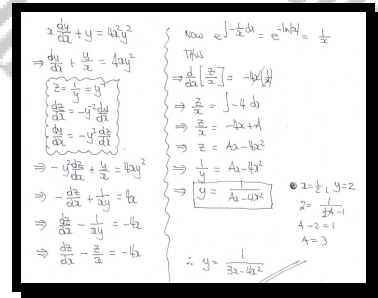 x dy/dx + y = 4x²y²
⇒ dy/dx + y/x = 4xy²
z = 1/y = y⁻¹
dz/dx = -y⁻² dy/dx
dy/dx = -y² dz/dx
⇒ -y² dz/dx + y/x = 4xy²
⇒ -dz/dx + 1/xy = 4x
⇒ dz/dx - 1/xy = -4x
⇒ dz/dx - z/x = -4x
Now e^∫-1/x dx = e^-ln|x| = 1/x
Thus
⇒ d/dx [z/x] = -4x(1/x)
⇒ z/x = ∫-4 dx
⇒ z/x = -4x+A
⇒ z = Ax-4x²
⇒ 1/y = Ax-4x²
⇒ y = 1/(Ax-4x²)
x=½, y=2
2 = 1/(½A-1)
A-2=1
A=3
∴ y = 1/(3x-4x²)